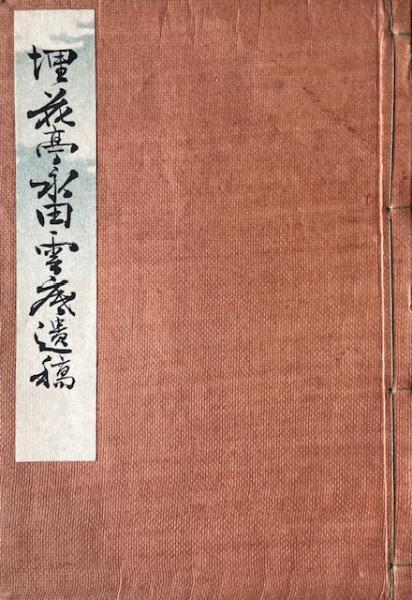 埋花亭永田雲底遺稿